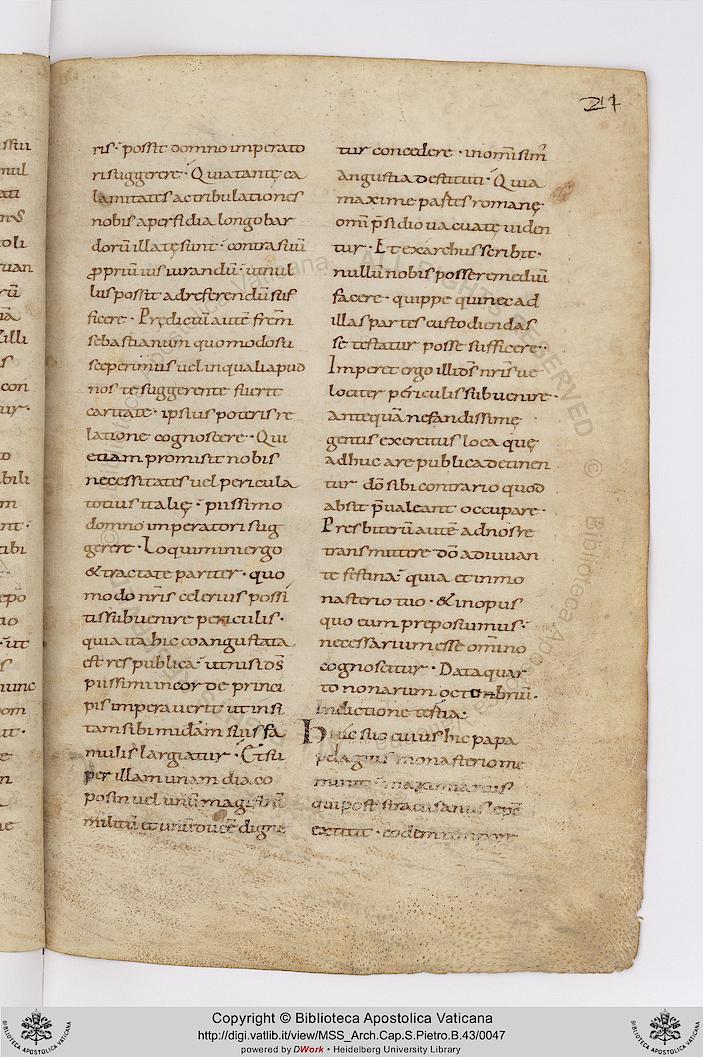 ris· possit domno imperato
ri suggerere· Quia tantę ca
lamitates ac tribulationes
nobis a perfidia longobar
dorū illatę sunt· contra suū
ꝓpriū ius iurandū· ut nul
lus possit ad referendū suf
ficere· Prędictū autē frēm
sebastianum quomodo su
sceperimus vel in qualiapud
nos te suggerente fuerit
caritate· ipsius poteris re
latione cognoscere· Qui
etiam promisit nobis
necessitates vel pericula
totius italię· piissimo
domno imperatori sug
gerere· Loquimini ergo
& tractate pariter· quo
modo nr̄is celerius possi
tis subvenire periculis·
quia ita hic coangustata
est res publica· ut nisi dꝰs̄
piissimi in cor de princi
pis imperaverit ut insi
tam sibi mīdam suis fa
mulis largiatur· Et su
per illam unam diaco
posin vel unū magistrū
militū et unū ducē digne
tur concedere· in om̄isim̄
angustia destituti· Quia
maxime partes romanę
om̄i p̄sidio vacuatę viden
tur· Et exarchus scribit·
nullū nobis posse remediū
facere· quippe qui nec ad
illas partes custodiendas
se testatur posse sufficere·
Imperet ergo illi dꝰs̄ nr̄is ve
lociter periculis subvenire·
antequā nefandissimę
gentis exercitus loca quę
adhuc a re publica detinen
tur dō sibi contrario quod
absit p̄valeant occupare·
Presbiterū autē ad nos re
transmittere dō adiuvan
te festina· quia et in mo
nasterio tuo· & in opus
quo eum preposuimus·
necessarium esse om̄ino
cognoscitur· Data quar
to nonarum octōnbriū·
Indictione tertia·
Huic suo cuius hic papa
pelagius monasterio me
minit· maximianus
qui post siracusanus ep̄s
extitit· eodem tempore
217
Copyright © Biblioteca Apostolica Vaticana
http://digi.vatlib.it/view/MSS_Arch.Cap.S.Pietro.B.43/0047
powered by DWork • Heidelberg University Library